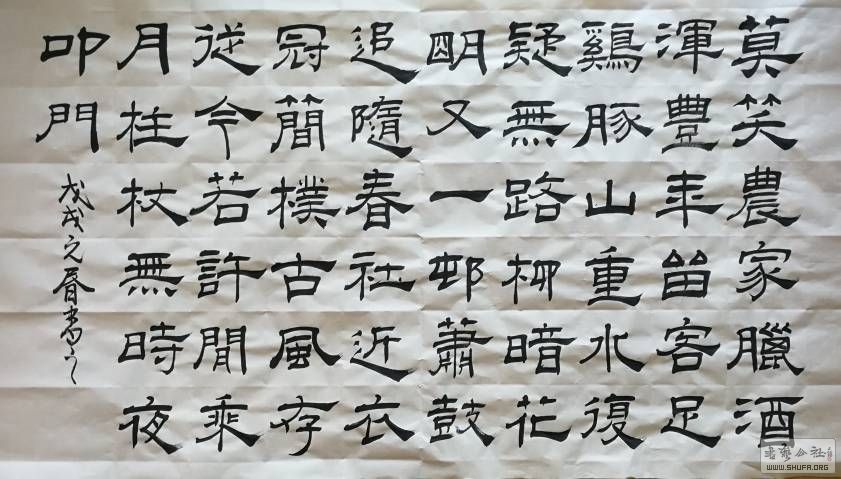 莫笑農家臘酒
渾豐年留客足
鷄豚山重水復
疑無路柳暗花
明又一邨蕭鼓
追隨春社近衣
冠簡樸古風存
從今若許閒乘
月拄杖無時夜
叩門
戊戌之春書之
书艺公社
WWW.SHUFA.ORG